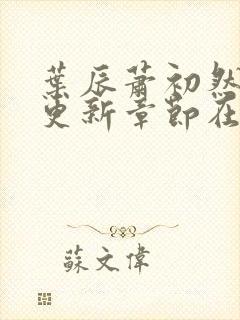 葉辰蕭初然
更新章節在
蘇文偉